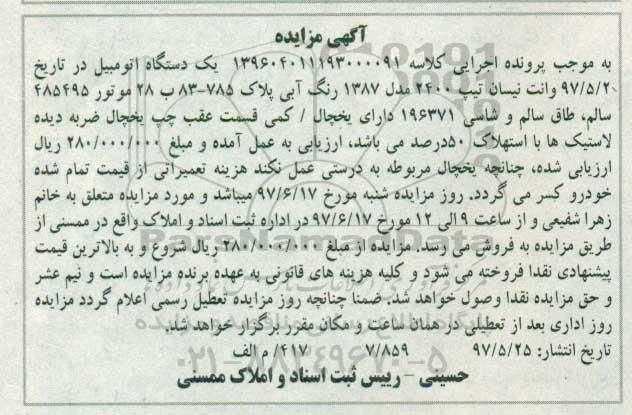 آگهی مزایده
به موجب پرونده اجرایی کلاسه ۱۳۹۶۰۴۰۱۱۱۹۳۰۰۰۰۹۱ یک دستگاه اتومبیل در تاریخ
۹۷/۵/۲ وانت نیسان تیپ ۲۴۰۰ مدل ۱۳۸۷ رنگ آبی پلاک ۷۸۵-۸۳ ب ۲۸ موتور ۴۸۵۴۹۵
سالم، طاق سالم و شاسی ۱۹۶۳۷۱ دارای یخچال / کمی قسمت عقب چپ یخچال ضربه دیده
لاستیک ها با استهلاک ۵۰درصد می باشد، ارزیابی به عمل آمده و مبلغ ۲۸۰/۰۰۰/۰۰۰ ریال
ارزیابی شده، چنانچه یخچال مربوطه به درستی عمل نکند هزینه تعمیراتی از قیمت تمام شده
خودرو کسر می گردد. روز مزایده شنبه مورخ ۹۷/۶/۱۷ میباشد و مورد مزایده متعلق به خانم
زهرا شفیعی و از ساعت ۹ الی ۱۲ مورخ ۹۷/۶/۱۷ در اداره ثبت اسناد و املاک واقع در ممسنی از
طریق مزایده به فروش می رسد. مزایده از مبلغ ۲۸۰/۰۰۰/۰۰۰ ریال شروع و به بالاترین قیمت
پیشنهادی نقدا فروخته می شود و کلیه هزینه های قانونی به عهده برنده مزایده است و نیم عشر
و حق مزایده نقدا وصول خواهد شد، ضمنا چنانچه روز مزایده تعطیل رسمی اعلام گردد مزایده
روز اداری بعد از تعطیلی در همان ساعت و مکان مقرر برگزار خواهد شد.
تاریخ انتشار: ۹۷/۵/۲۵ ۷/۸۵۹ ۴۱۷/ م الف
حسینی - رییس ثبت اسناد و املاک ممسنی
ParsNamadData
۰۲۱-۸۸۳۴۹۶۷۰-۵